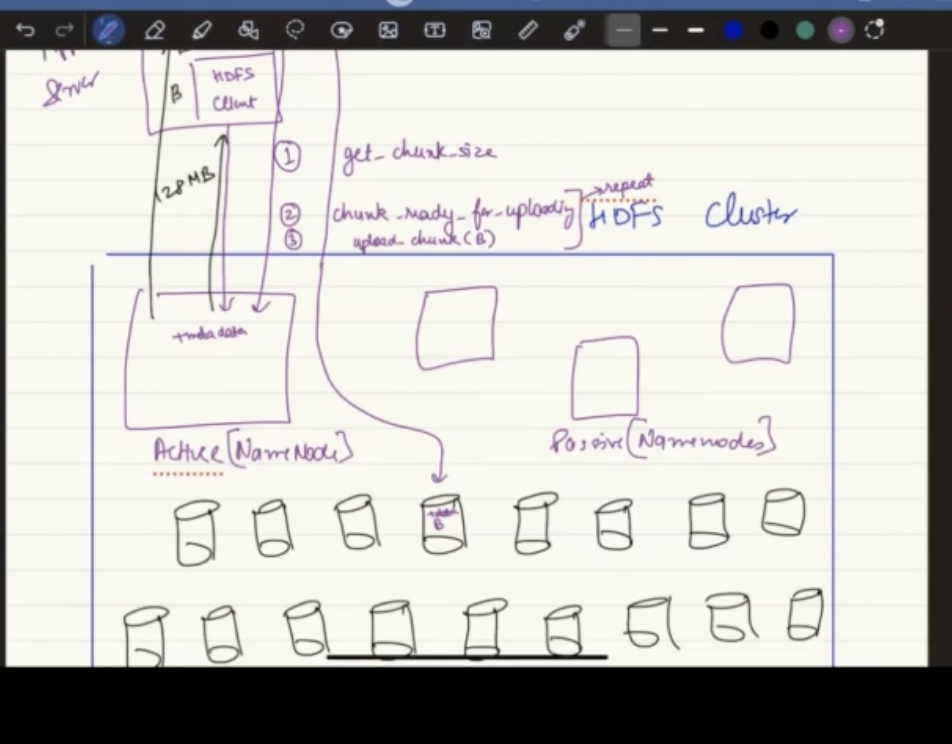 Server
HDFS
Client
B
128 MB
① get_chunk_size
② chunk_ready_for_uploading
③ upload_chunk(B)
repeat
HDFS Cluster
+metadata
Active [NameNode]
Passive [Namenodes]
+data
B